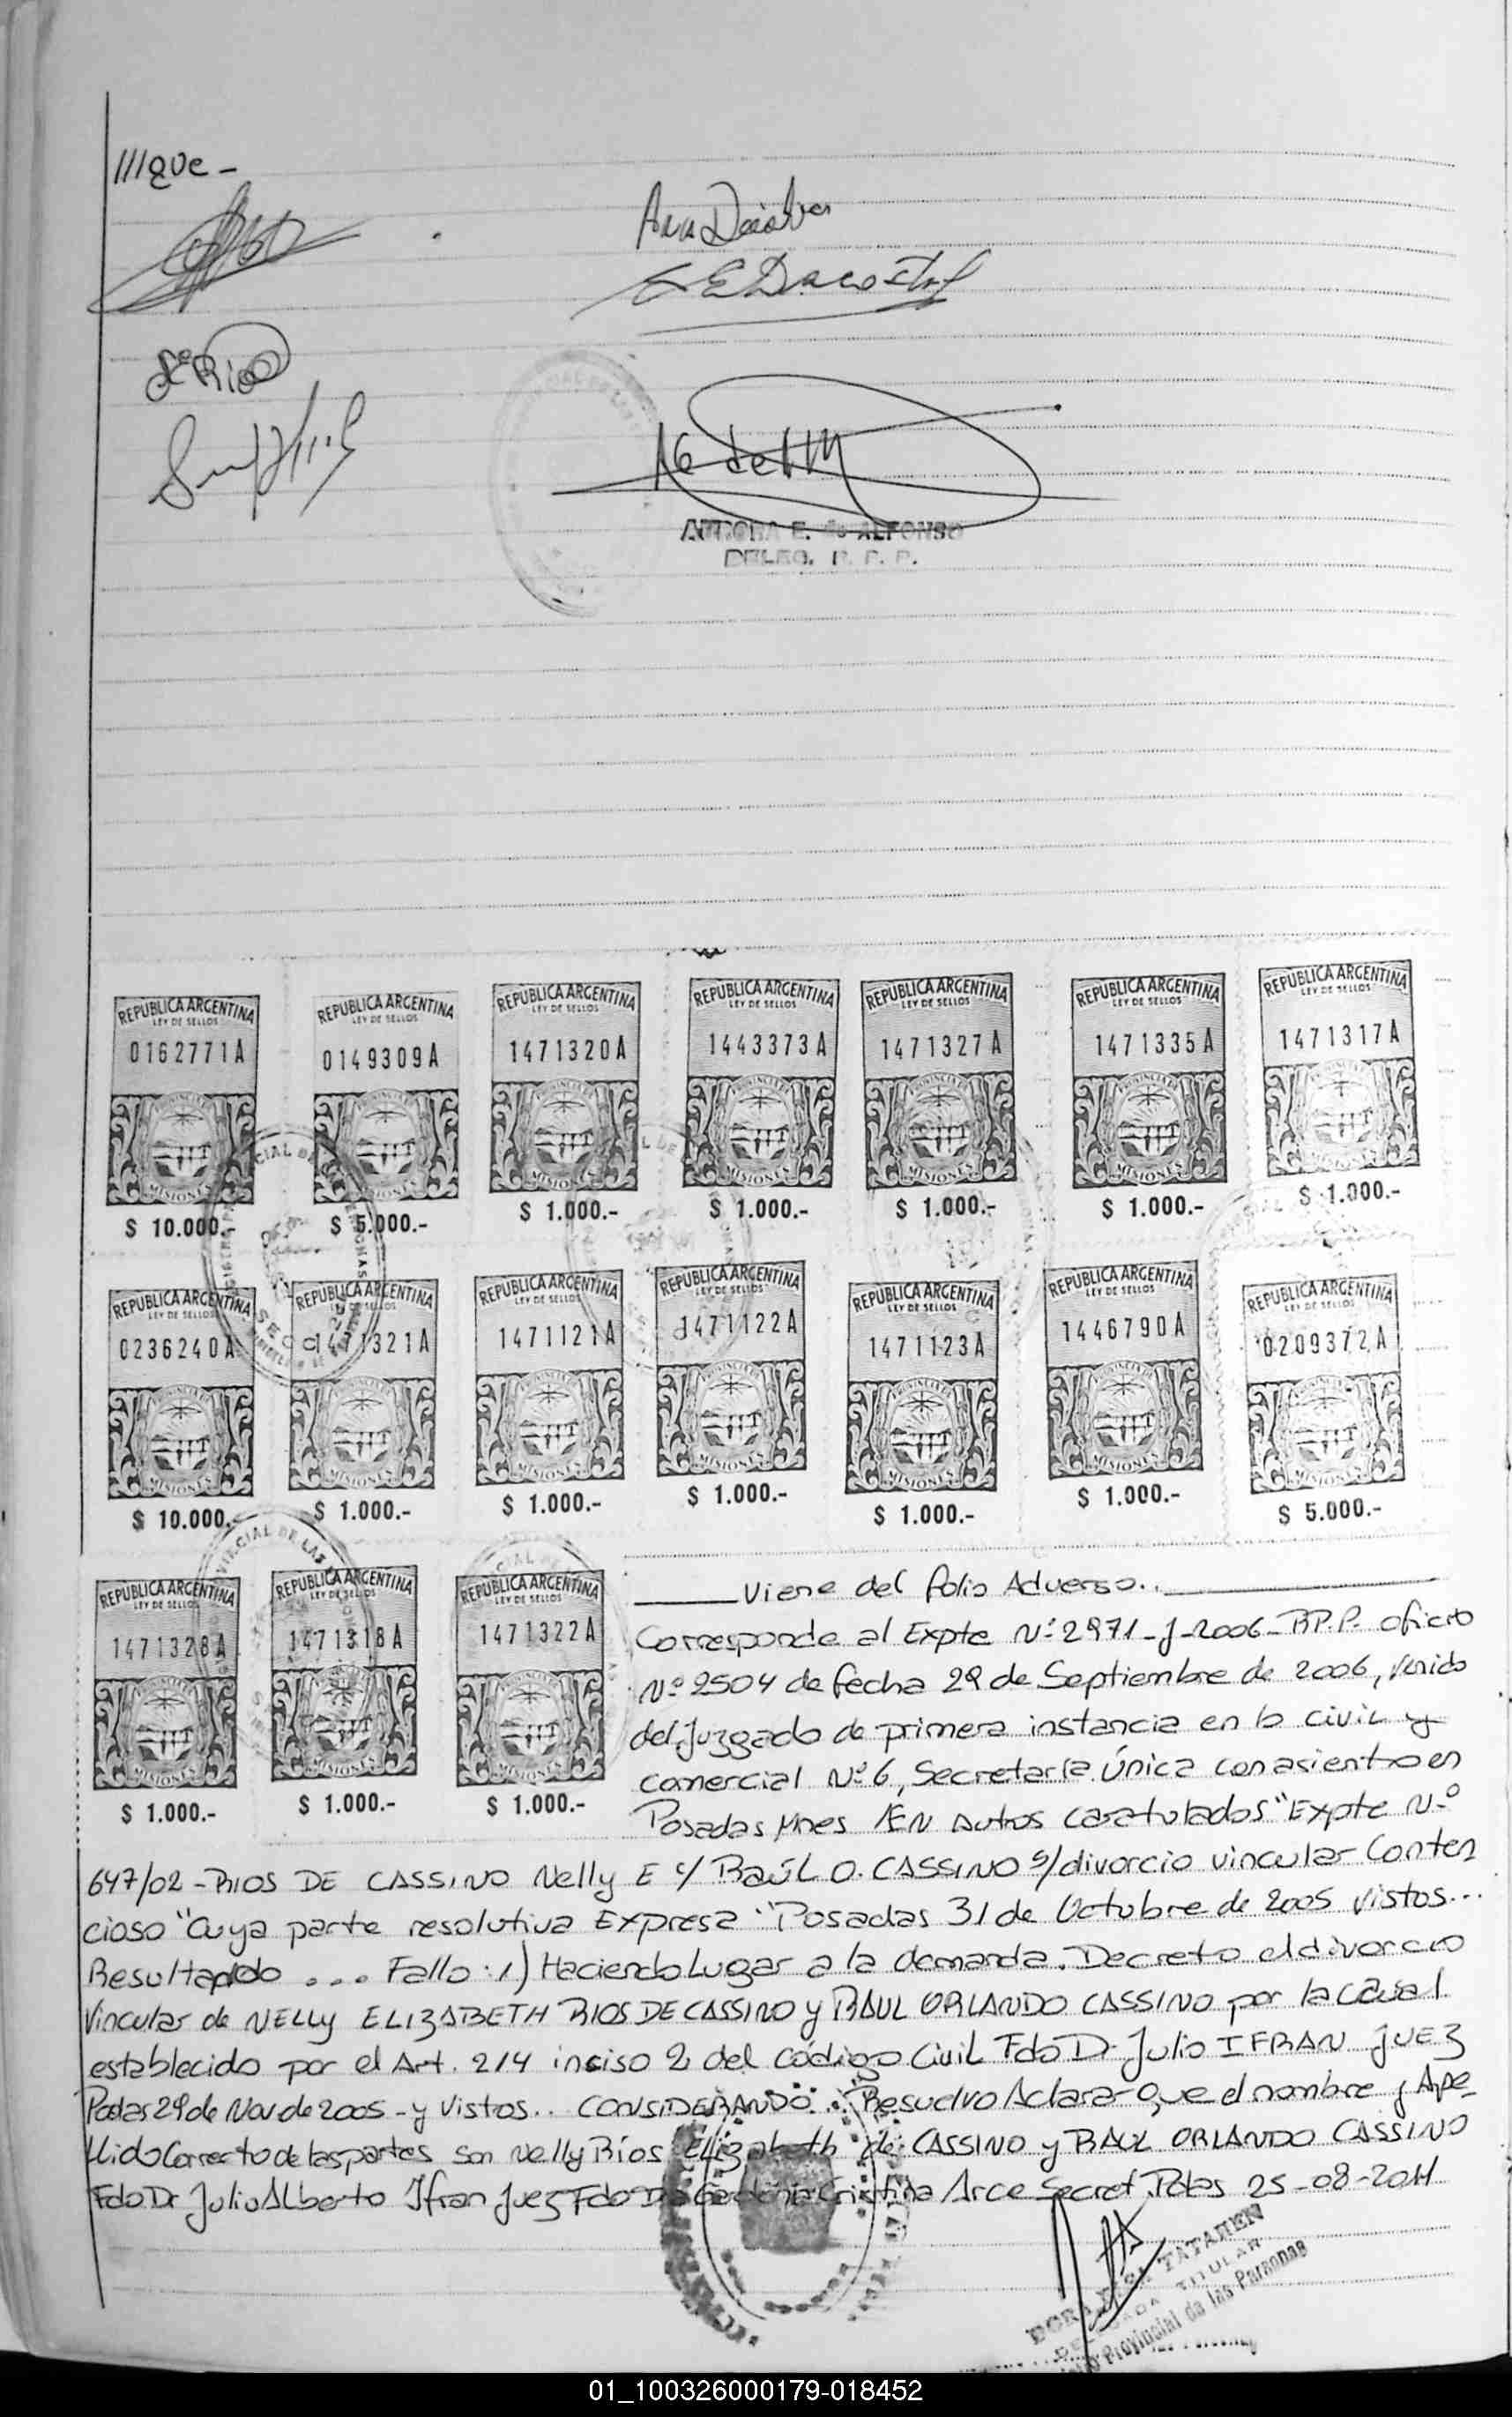 ///que-
Ana Da
E Dacosta
Rios
AURORA E. de ALFONSO
DELEG. R. P. P.
REPUBLICA ARGENTINA
LEY DE SELLOS
0162771A
MISIONES
$ 10.000.-
REPUBLICA ARGENTINA
LEY DE SELLOS
0149309A
MISIONES
$ 5.000.-
REPUBLICA ARGENTINA
LEY DE SELLOS
1471320A
MISIONES
$ 1.000.-
REPUBLICA ARGENTINA
LEY DE SELLOS
1443373A
MISIONES
$ 1.000.-
REPUBLICA ARGENTINA
LEY DE SELLOS
1471327A
MISIONES
$ 1.000.-
REPUBLICA ARGENTINA
LEY DE SELLOS
1471335A
MISIONES
$ 1.000.-
REPUBLICA ARGENTINA
LEY DE SELLOS
1471317A
MISIONES
$ 1.000.-
REPUBLICA ARGENTINA
LEY DE SELLOS
0236240A
MISIONES
$ 10.000.-
REPUBLICA ARGENTINA
LEY DE SELLOS
1471321A
MISIONES
$ 1.000.-
REPUBLICA ARGENTINA
LEY DE SELLOS
1471121A
MISIONES
$ 1.000.-
REPUBLICA ARGENTINA
LEY DE SELLOS
1471122A
MISIONES
$ 1.000.-
REPUBLICA ARGENTINA
LEY DE SELLOS
1471123A
MISIONES
$ 1.000.-
REPUBLICA ARGENTINA
LEY DE SELLOS
1446790A
MISIONES
$ 1.000.-
REPUBLICA ARGENTINA
LEY DE SELLOS
0209372A
MISIONES
$ 5.000.-
REPUBLICA ARGENTINA
LEY DE SELLOS
1471328A
MISIONES
$ 1.000.-
REPUBLICA ARGENTINA
LEY DE SELLOS
1471318A
MISIONES
$ 1.000.-
REPUBLICA ARGENTINA
LEY DE SELLOS
1471322A
MISIONES
$ 1.000.-
Viene del folio Adverso..
Corresponde al Expte Nº 2971-J-2006-RP.P. oficio
Nº 2504 de fecha 29 de Septiembre de 2006, venido
del Juzgado de primera instancia en lo civil y
comercial Nº 6, Secretaría Única con asiento en
Posadas Mnes /EN autos caratulados "Expte Nº
647/02-RIOS DE CASSINO Nelly E c/ Raúl O. CASSINO s/divorcio vincular Conten
cioso "Cuya parte resolutiva Expresa "Posadas 31 de Octubre de 2005 vistos...
Resultando ... Fallo: 1) Haciendo Lugar a la demanda. Decreto el divorcio
Vincular de NELLY ELIZABETH RIOS DE CASSINO y RAUL ORLANDO CASSINO por la causal
establecido por el Art. 214 inciso 2 del código Civil Fdo Dr Julio IFRAN JUEZ
Podas 29 de Nov de 2005-y Vistos.. CONSIDERANDO.. Resuelvo Aclarar que el nombre y Ape-
llido Correcto de las partes son Nelly Ríos Elizabeth de CASSINO y RAUL ORLANDO CASSINO
Fdo Dr Julio Alberto Ifran Juez Fdo Dra Cristina Arce Secret Pdas 25-08-2011
TATAREN
DELEGADA TITULAR
Provincial de las Personas
01_100326000179-018452